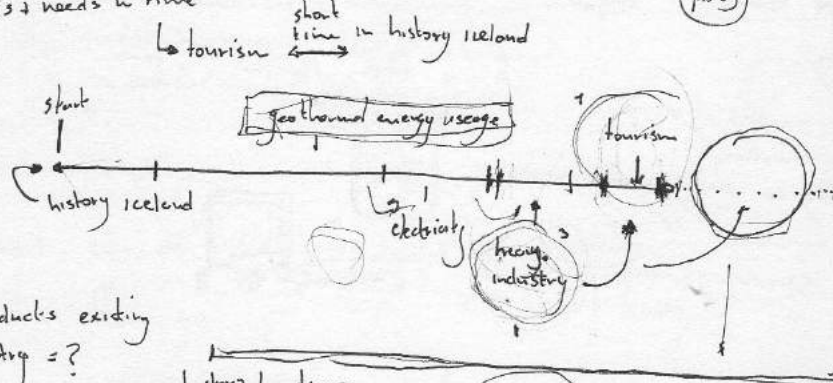 needs in time
short
↳ tourism ↔ time in history iceland
start
geothermal energy useage
tourism
history iceland
2
electricity
3
heavy
industry
1
existing
= ?